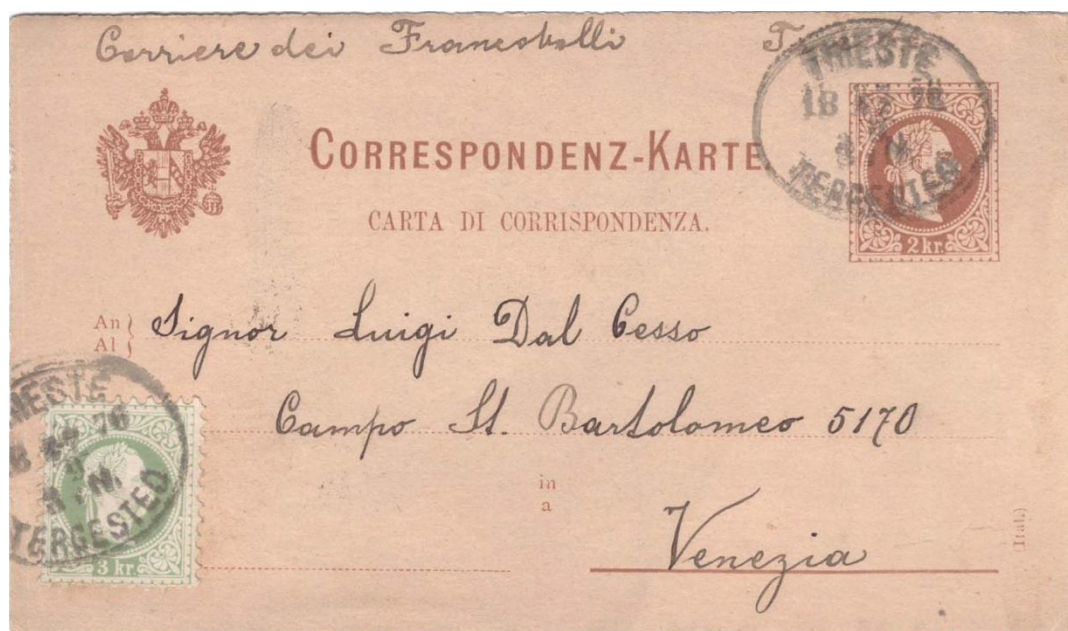 Corriere dei Francobolli
TRIESTE
18
TERGESTEO
CORRESPONDENZ-KARTE
CARTA DI CORRISPONDENZA.
2 kr.
An
Al
Signor Luigi Dal Cesso
Campo St. Bartolomeo 5170
in
a
Venezia
(Ital.)
TRIESTE
TERGESTEO
3 kr.